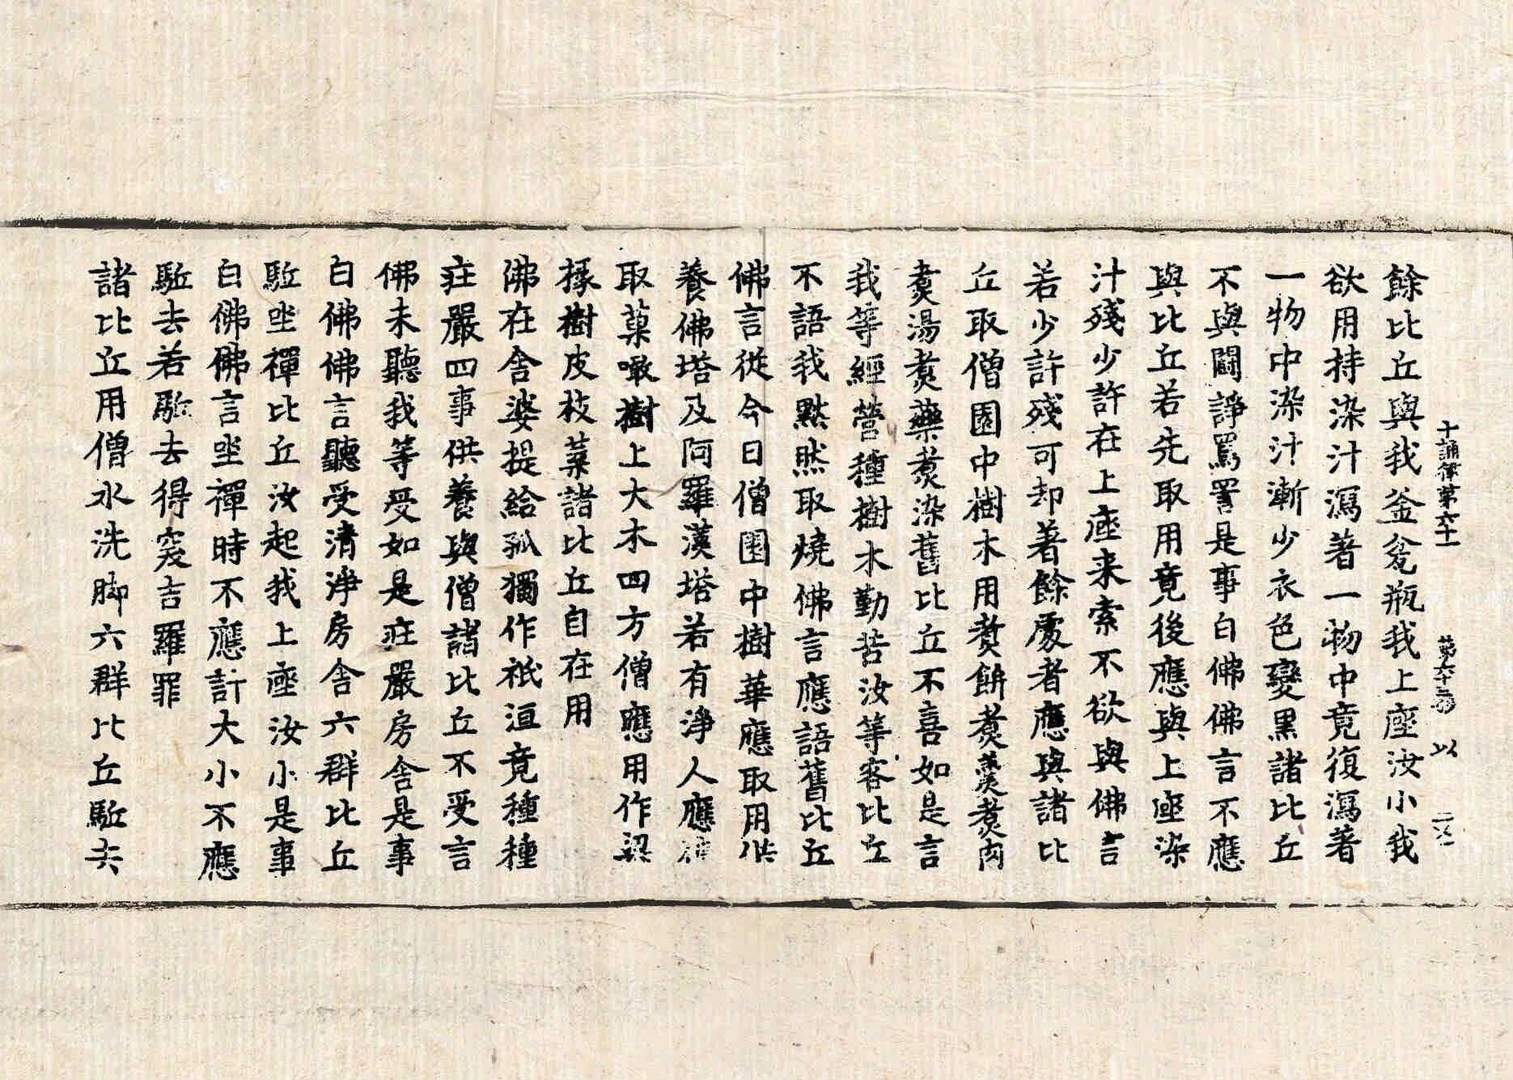 十誦律第六十一 第六十三張 以
餘比丘與我釜瓮瓶我上座汝小我
欲用持染汁瀉著一物中竟復瀉著
一物中染汁漸少衣色變黑諸比丘
不與鬪諍罵詈是事白佛佛言不應
與比丘若先取用竟後應與上座染
汁殘少許在上座来索不欲與佛言
若少許殘可却著餘處者應與諸比
丘取僧園中樹木用煑餅煑羹煑肉
煑湯煑藥煑染舊比丘不喜如是言
我等經營種樹木勤苦汝等客比丘
不語我黙然取燒佛言應語舊比丘
佛言從今日僧園中樹華應取用供
養佛塔及阿羅漢塔若有淨人應
取菓噉樹上大木四方僧應用作梁
椽樹皮枝葉諸比丘自在用
佛在舍婆提給孤獨作祇洹竟種種
莊嚴四事供養與僧諸比丘不受言
佛未聽我等受如是莊嚴房舍是事
白佛佛言聽受清淨房舍六群比丘
駈坐禪比丘汝起我上座汝小是事
白佛佛言坐禪時不應計大小不應
駈去若駈去得突吉羅罪
諸比丘用僧水洗脚六群比丘駈去